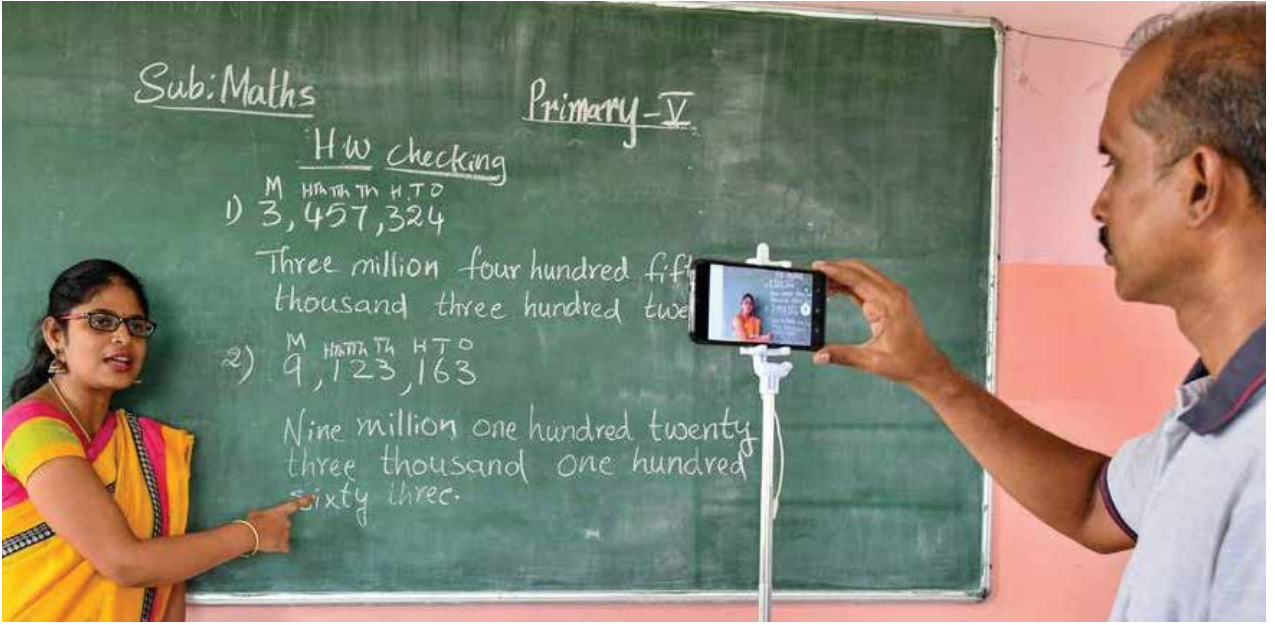 Sub: Maths
Primary-V
HW checking
M HTh TTh Th H T O
1) 3,457,324
Three million four hundred
thousand three hundred
M HTh TTh Th H T O
2) 9,123,163
Nine million one hundred twenty
three thousand one hundred
sixty three.